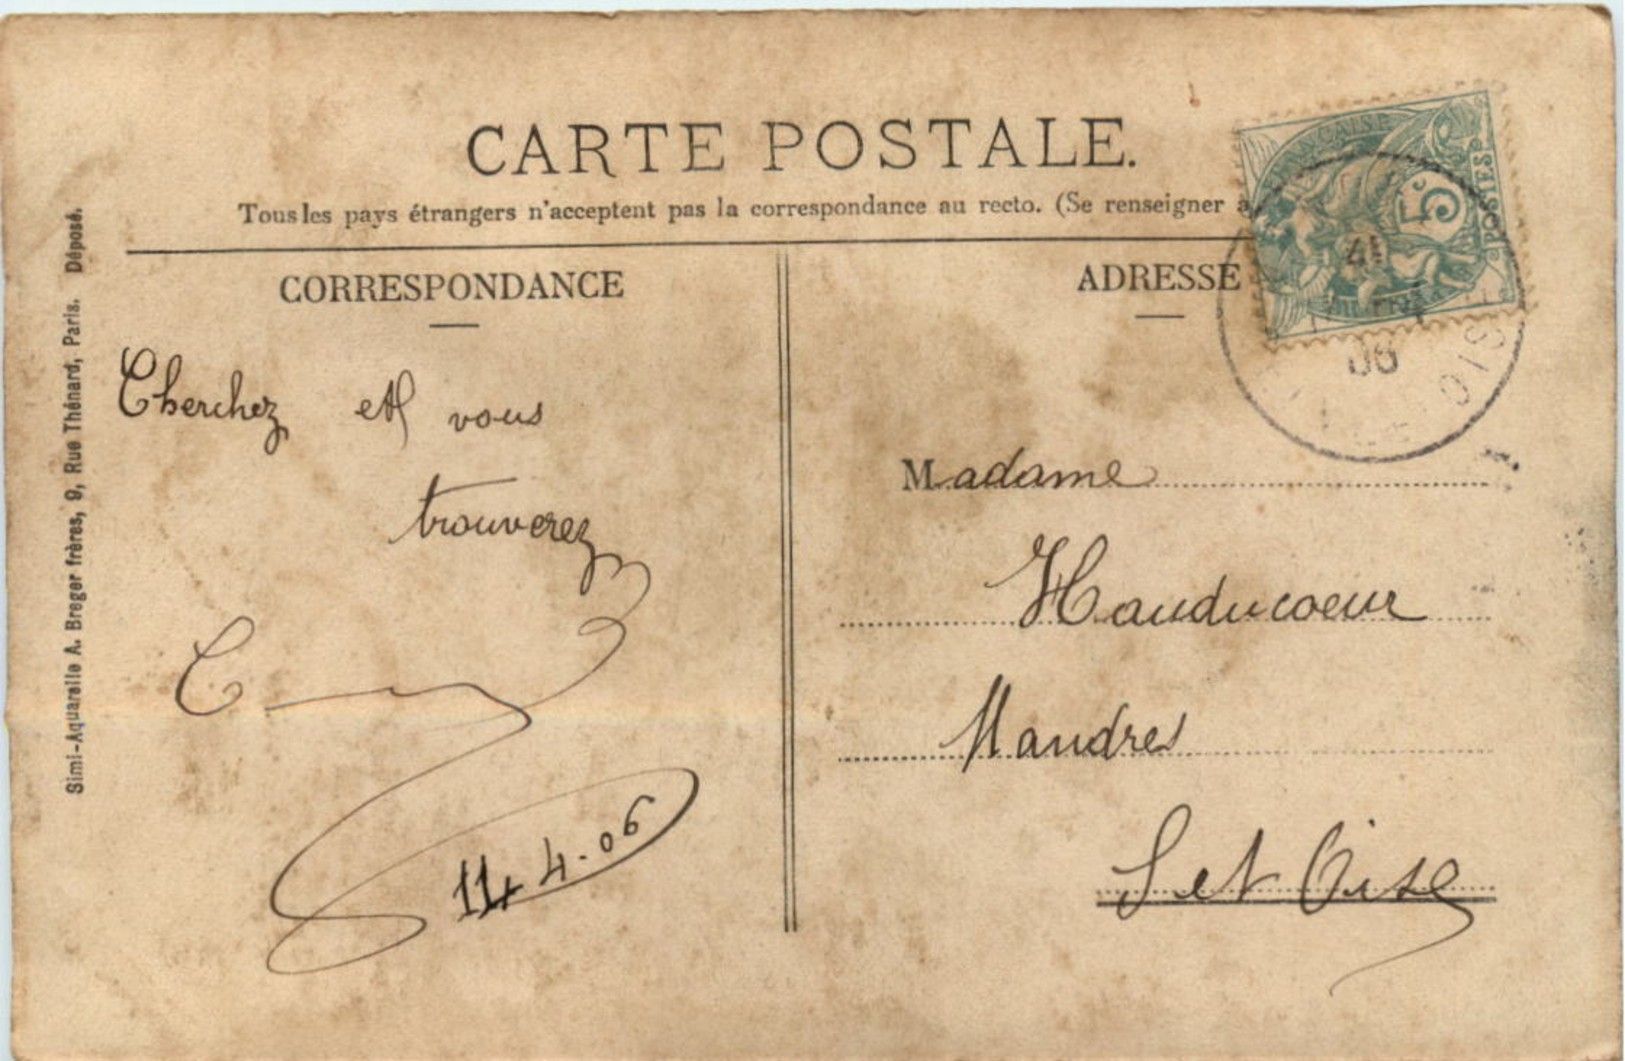 CARTE POSTALE.
Tous les pays étrangers n'acceptent pas la correspondance au recto. (Se renseigner à
CORRESPONDANCE
Cherchez et vous
trouverez
C
14-4-06
Simi-Aquarelle A. Breger frères, 9, Rue Thénard, Paris. Déposé.
ADRESSE
Madame
Hauducoeur
Mandres
S et Oise
5c
POSTES
06